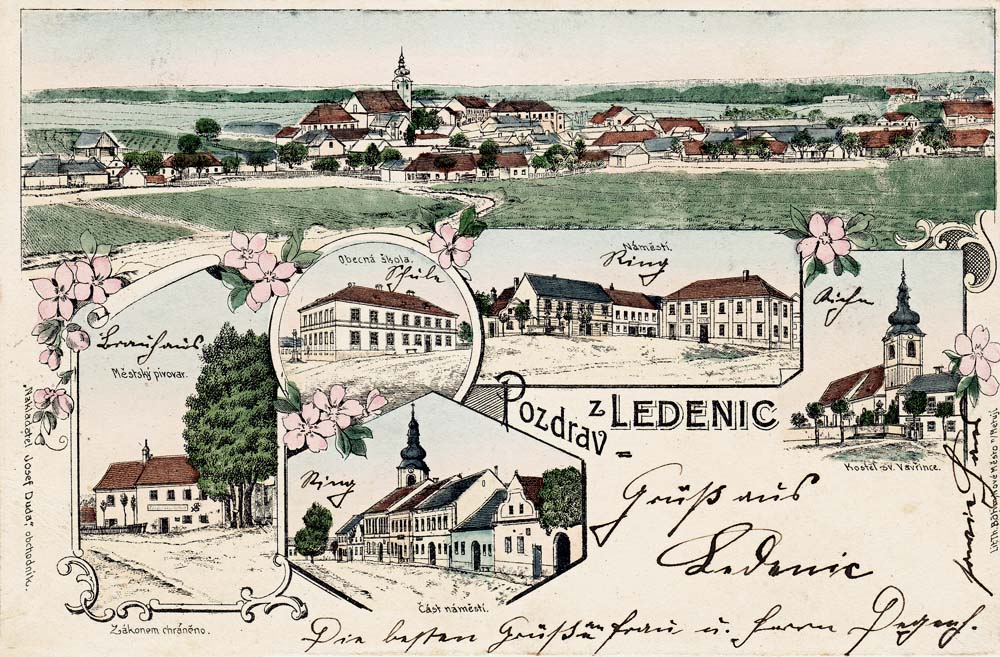 Obecná škola.
Schule
Náměstí.
Ring
Brauhaus
Městský pivovar.
Pozdrav z LEDENIC
Kostel sv. Vavřince.
Ring
Gruß aus
Ledenic
Část náměstí.
Zákonem chráněno.
Die besten Grüße an Frau u. Herrn
Nákladem Josef Duda, obchodník.